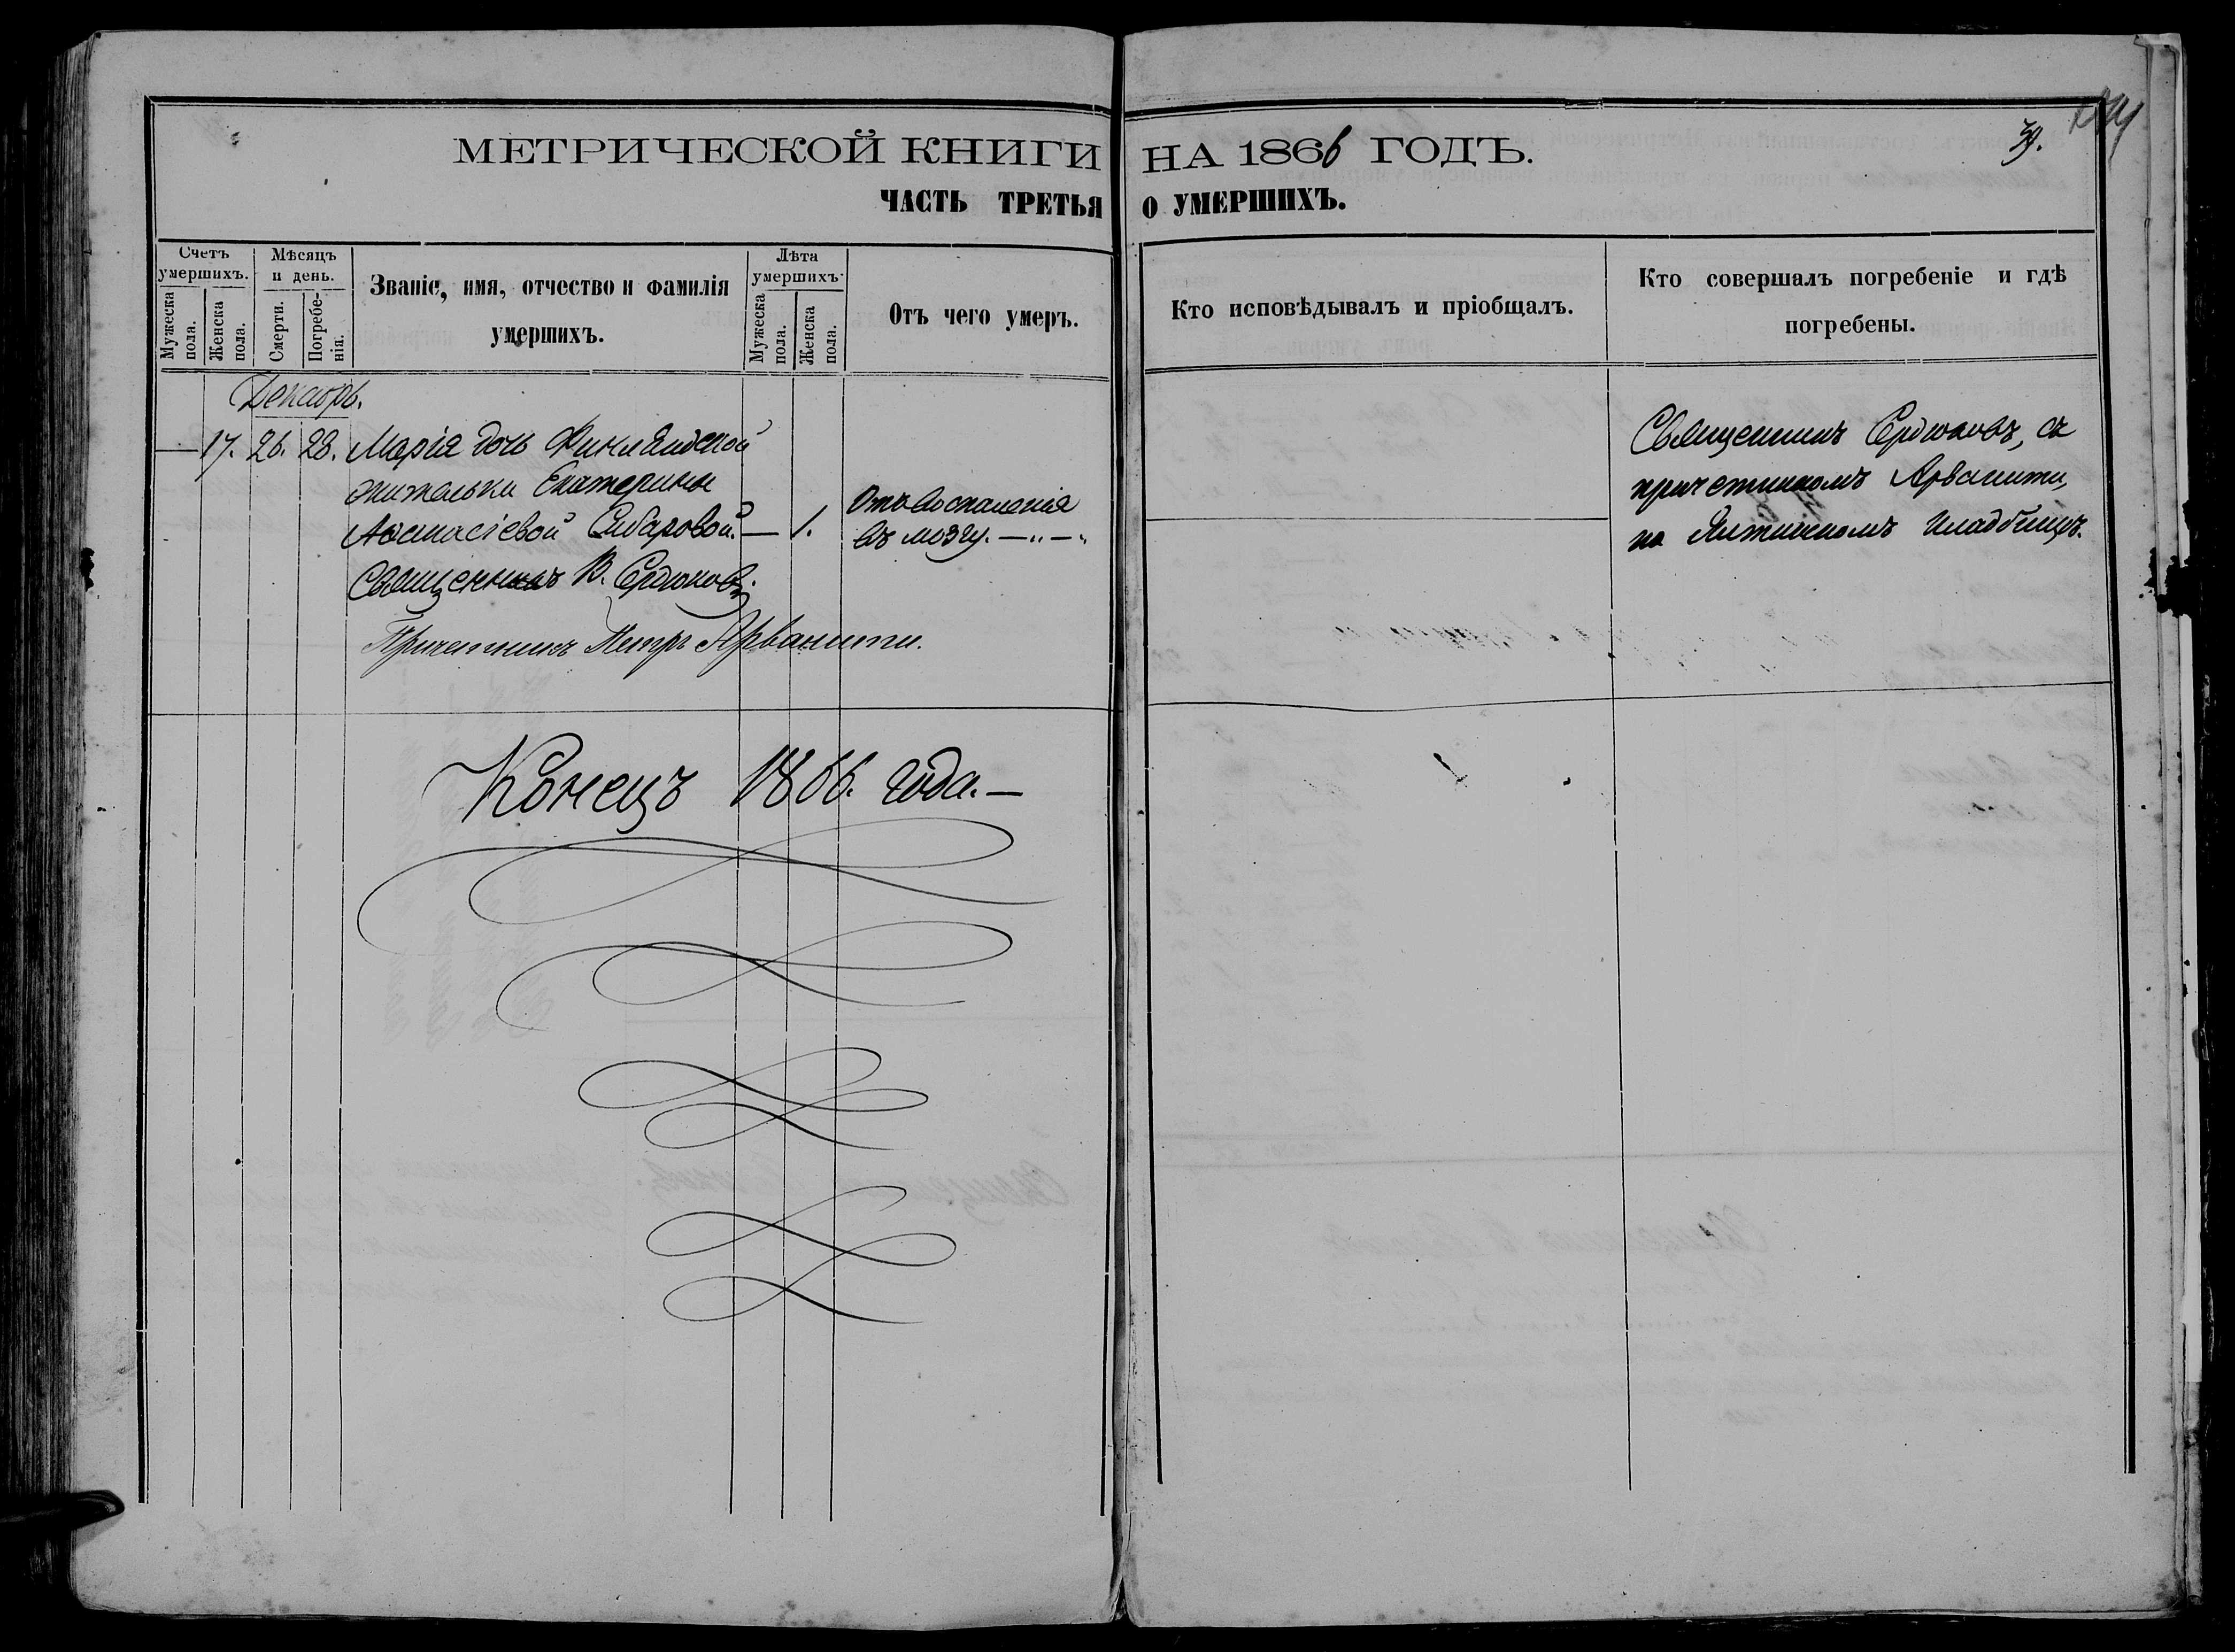 МЕТРИЧЕСКОЙ КНИГИ НА 1866 ГОДЪ.
39.
ЧАСТЬ ТРЕТЬЯ О УМЕРШИХЪ.
Счетъ умершихъ.
Мужеска пола.
Женска пола.
Мѣсяцъ и день.
Смерти.
Погребенія.
Званіе, имя, отчество и фамилія
умершихъ.
Лѣта умершихъ.
Мужеска пола.
Женска пола.
Отъ чего умеръ.
Кто исповѣдывалъ и пріобщалъ.
Кто совершалъ погребеніе и гдѣ
погребены.
Декабрь.
— 17. 26. 28. Марія дочь Финляндской
жительки Екатерины
Афанасіевой Сибаровой. — 1.
Отъ воспаленія
въ мозгу. —„—„
Священникъ В. Сердюковъ.
Причетникъ Петръ Арванити.
Священникъ Сердюковъ, съ
причетникомъ Арванити,
на Ялтинскомъ кладбищѣ.
Конецъ 1866. года. —